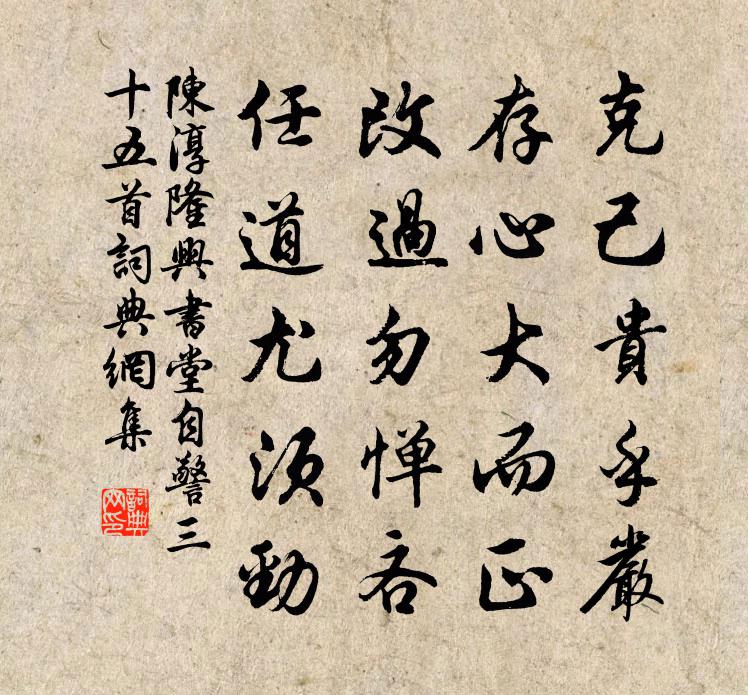 克己貴乎嚴
存心大而正
改過勿憚吝
任道尤須勁
陳淳隆興書堂自警三
十五首詞典網集
詞典
网印